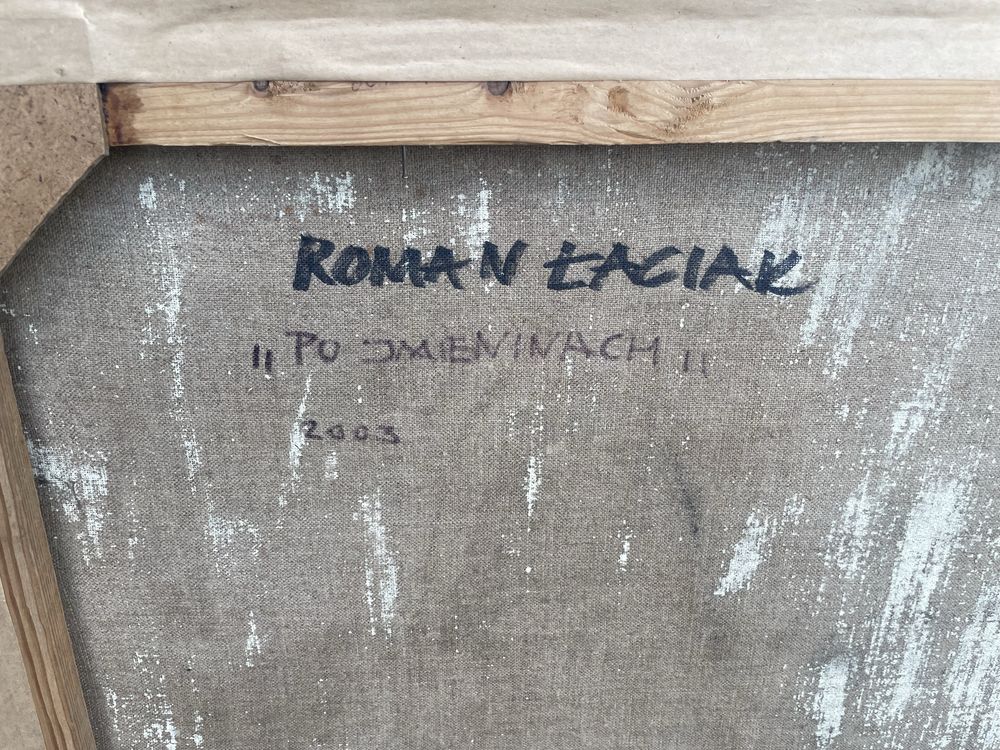 ROMAN ŁACIAK
"PO IMIENINACH"
2003